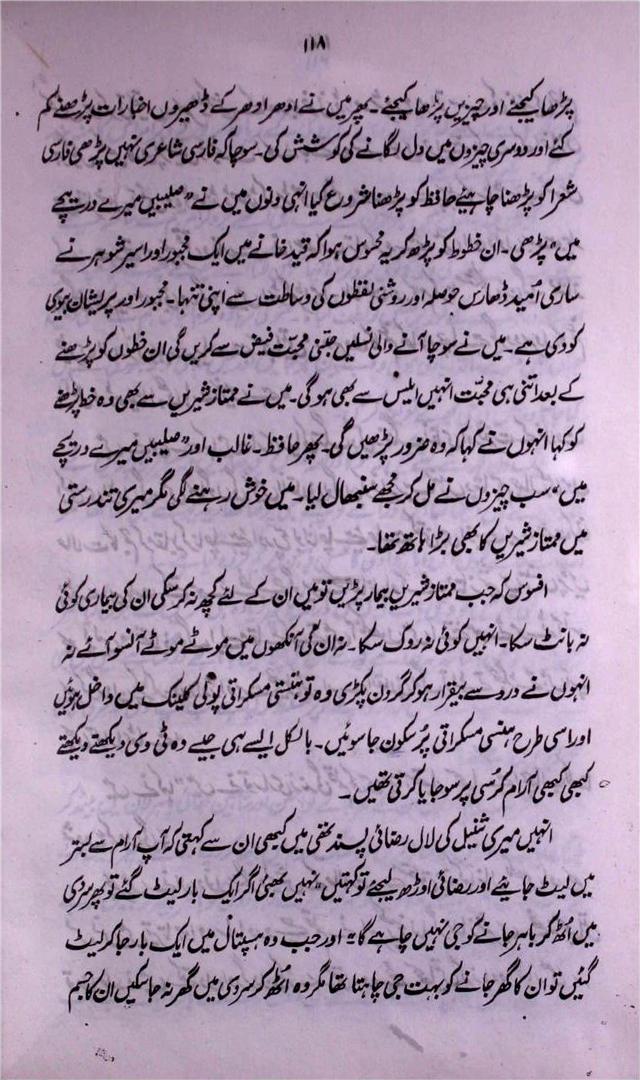 ۱۱۸
پڑھا کیجئے اور چیزیں پڑھا کیجئے۔ پھر میں نے ادھر ادھر کے ڈھیروں اخبارات پڑھنے کم
کئے اور دوسری چیزوں میں دل لگانے کی کوشش کی۔ سوچا کہ فارسی شاعری نہیں پڑھی فارسی
شعرا کو پڑھنا چاہیئے حافظ کو پڑھنا شروع کیا انہی دنوں میں نے ”صلیبیں میرے دریچے
میں“ پڑھی۔ ان خطوط کو پڑھ کر یہ محسوس ہوا کہ قید خانے میں ایک مجبور اور اسیر شوہر نے
ساری اُمید ڈھارس حوصلہ اور روشنی لفظوں کی وساطت سے اپنی تنہا۔ مجبور اور پریشان بیوی
کو دی ہے۔ میں نے سوچا آنے والی نسلیں جتنی محبت فیض سے کریں گی ان خطوں کو پڑھنے
کے بعد اتنی ہی محبت انہیں ایلس سے بھی ہوگی۔ میں نے ممتاز شیریں سے بھی وہ خط پڑھنے
کو کہا انہوں نے کہا کہ وہ ضرور پڑھیں گی۔ پھر حافظ۔ غالب اور ”صلیبیں میرے دریچے
میں“ سب چیزوں نے مل کر مجھے سنبھال لیا۔ میں خوش رہنے لگی مگر میری تندرستی
میں ممتاز شیریں کا بھی بڑا ہاتھ تھا۔
افسوس کہ جب ممتاز شیریں بیمار پڑیں تو میں ان کے لئے کچھ نہ کر سکی ان کی بیماری کوئی
نہ بانٹ سکا۔ انہیں کوئی نہ روک سکا۔ نہ ان کی آنکھوں میں موٹے موٹے آنسو آئے نہ
انہوں نے درد سے بیقرار ہو کر گردن پکڑی وہ تو ہنستی مسکراتی پولی کلینک میں داخل ہوئیں
اور اسی طرح ہنسی مسکراتی پُرسکون جا سوئیں۔ بالکل ایسے ہی جیسے وہ ٹی وی دیکھتے دیکھتے
کبھی کبھی آرام کرسی پر سو جایا کرتی تھیں۔
انہیں میری شنیل کی لال رضائی پسند تھی میں کبھی ان سے کہتی کہ آپ آرام سے بستر
میں لیٹ جایئے اور رضائی اوڑھ لیجئے تو کہتیں ”نہیں بھئی اگر ایک بار لیٹ گئے تو پھر سردی
میں اُٹھ کر باہر جانے کو جی نہیں چاہے گا“ اور جب وہ ہسپتال میں ایک بار جا کر لیٹ
گئیں تو ان کا گھر جانے کو بہت جی چاہتا تھا مگر وہ اُٹھ کر سردی میں گھر نہ جا سکیں ان کا جسم